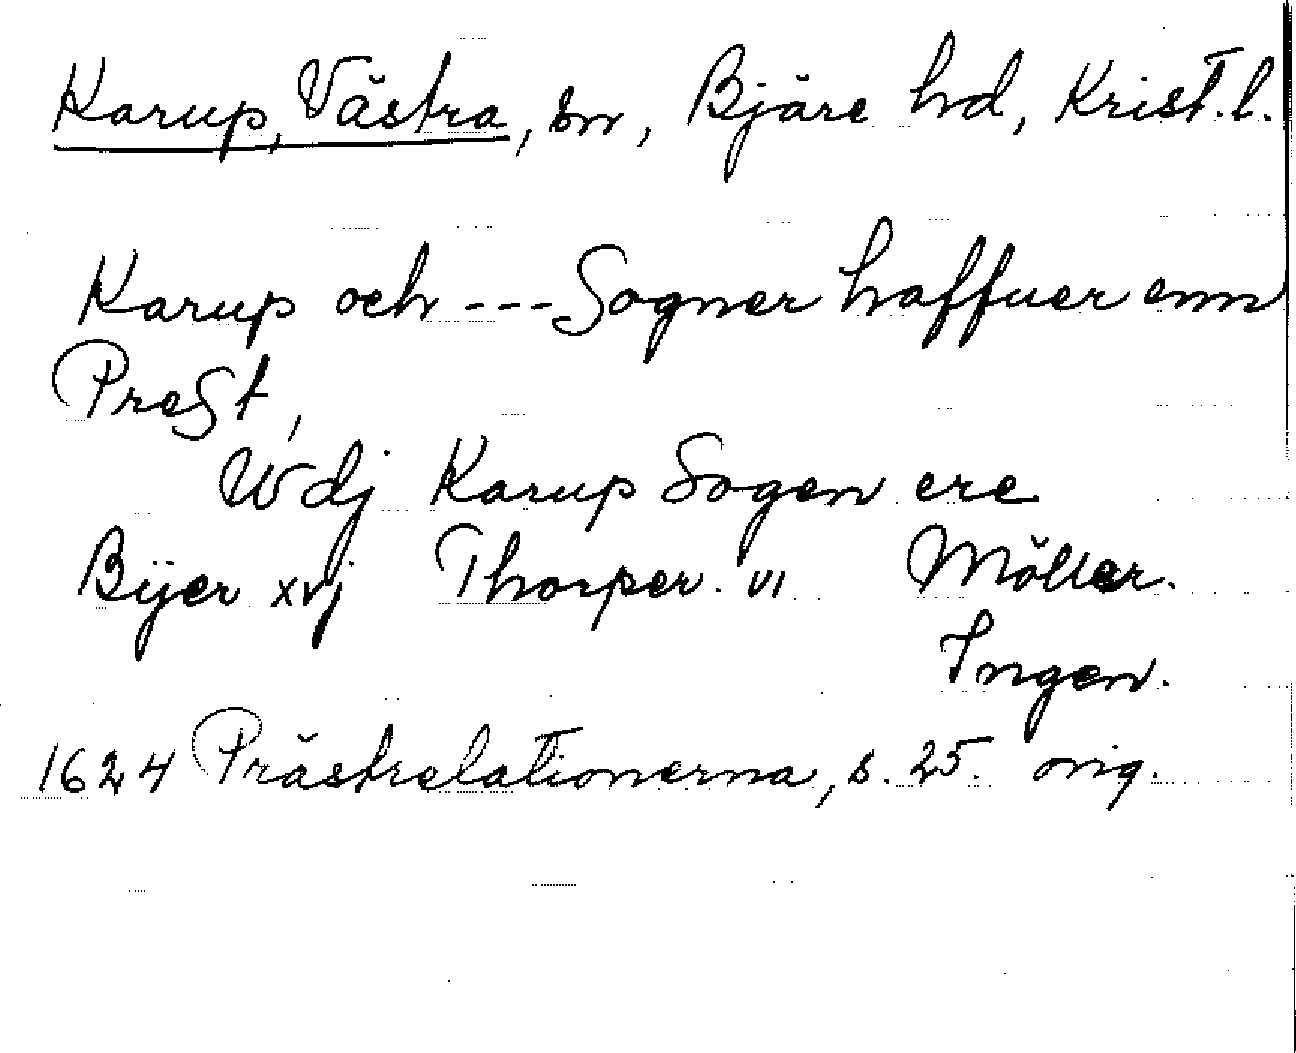 Karup, Västra, sn, Bjäre hd, Krist. l.
Karup och --- Sogner haffuer enn
PreSt,
Wdj Karup Sogen ere
Bÿer xvj Thorper. VI Möller.
Ingen.
1624 Prästrelationerna, s. 25. orig.